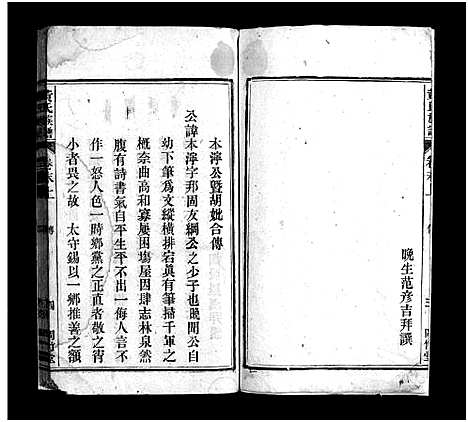 晚生范彦吉拜譔
木濘公暨胡妣合傳
公諱木濘字邦固友綱公之少子也曉聞公自
幼下筆為文縱橫排宕眞有筆掃千軍之
概奈曲高和寡屢困塲屋因肆志林泉然
腹有詩書氣自平生平不出一侮人言不
作一怒人色一時鄉黨之正直者敬之宵
小者畏之故 太守錫以一鄉推善之額
黃氏族譜
傳
四